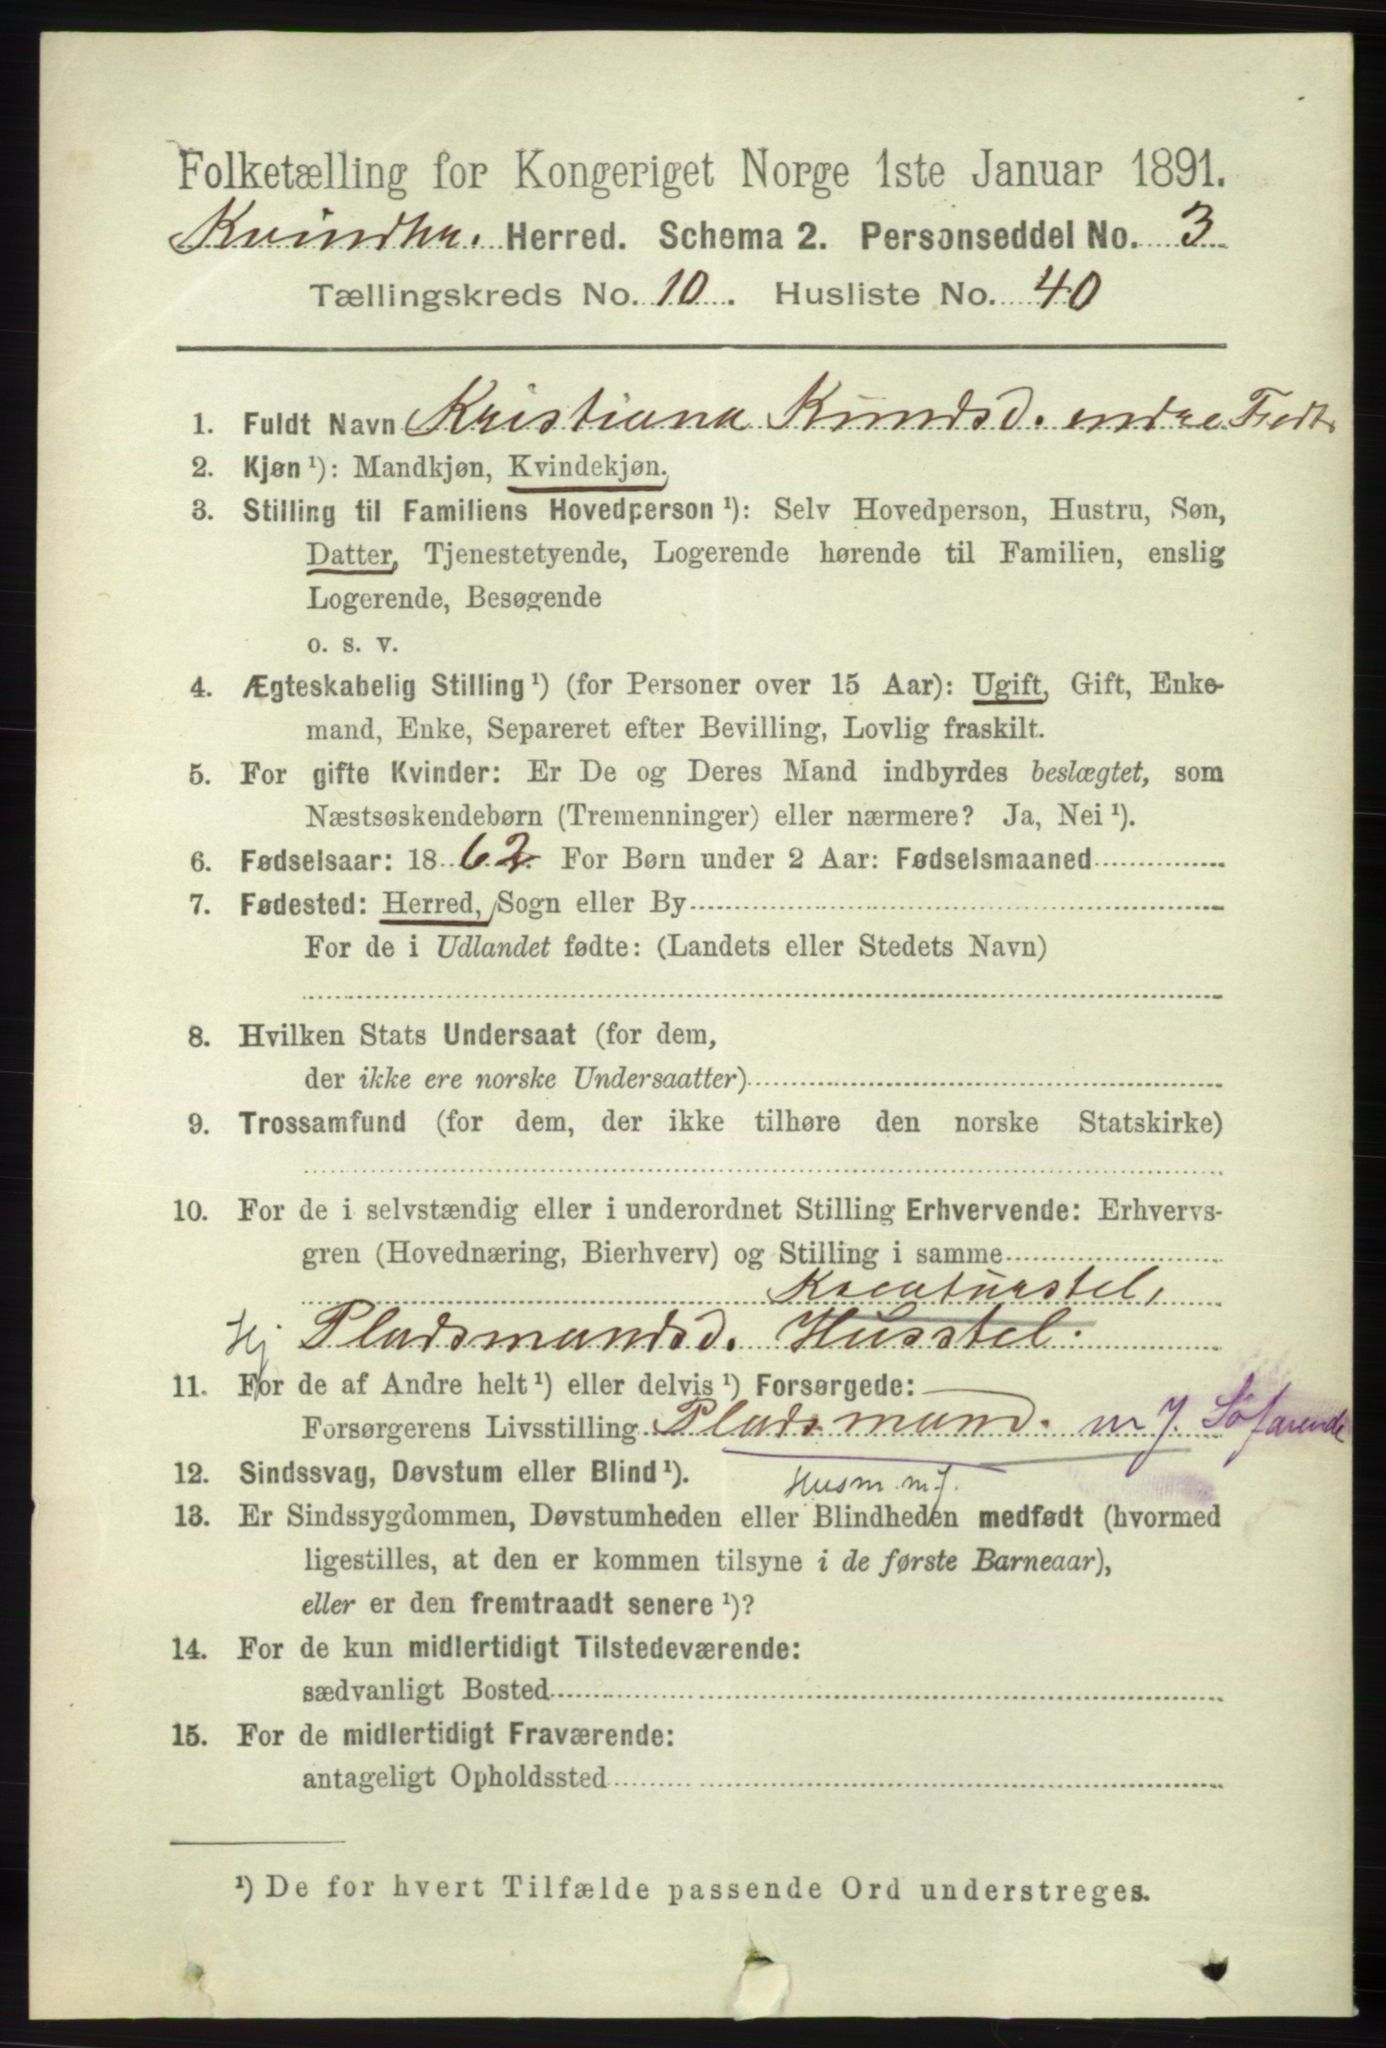 Folketælling for Kongeriget Norge 1ste Januar 1891.
Kvindhr. Herred. Schema 2. Personseddel No. 3
Tællingskreds No. 10. Husliste No. 40
1. Fuldt Navn Kristiana Knudsd. endre Tredt.
2. Kjøn ¹): Mandkjøn, Kvindekjøn.
3. Stilling til Familiens Hovedperson ¹): Selv Hovedperson, Hustru, Søn,
Datter, Tjenestetyende, Logerende hørende til Familien, enslig
Logerende, Besøgende
o. s. v.
4. Ægteskabelig Stilling ¹) (for Personer over 15 Aar): Ugift, Gift, Enke-
mand, Enke, Separeret efter Bevilling, Lovlig fraskilt.
5. For gifte Kvinder: Er De og Deres Mand indbyrdes beslægtet, som
Næstsøskendebørn (Tremenninger) eller nærmere? Ja, Nei ¹).
6. Fødselsaar: 1862. For Børn under 2 Aar: Fødselsmaaned
7. Fødested: Herred, Sogn eller By
For de i Udlandet fødte: (Landets eller Stedets Navn)
8. Hvilken Stats Undersaat (for dem,
der ikke ere norske Undersaatter)
9. Trossamfund (for dem, der ikke tilhøre den norske Statskirke)
10. For de i selvstændig eller i underordnet Stilling Erhvervende: Erhvervs-
gren (Hovednæring, Bierhverv) og Stilling i samme
Kreaturstel,
Hj Pladsmandsd. Husstel.
11. For de af Andre helt ¹) eller delvis ¹) Forsørgede:
Forsørgerens Livsstilling Pladsmand. m J. Søfarende
12. Sindssvag, Døvstum eller Blind ¹).
Husm. m J.
13. Er Sindssygdommen, Døvstumheden eller Blindheden medfødt (hvormed
ligestilles, at den er kommen tilsyne i de første Barneaar),
eller er den fremtraadt senere ¹)?
14. For de kun midlertidigt Tilstedeværende:
sædvanligt Bosted
15. For de midlertidigt Fraværende:
antageligt Opholdssted
¹) De for hvert Tilfælde passende Ord understreges.